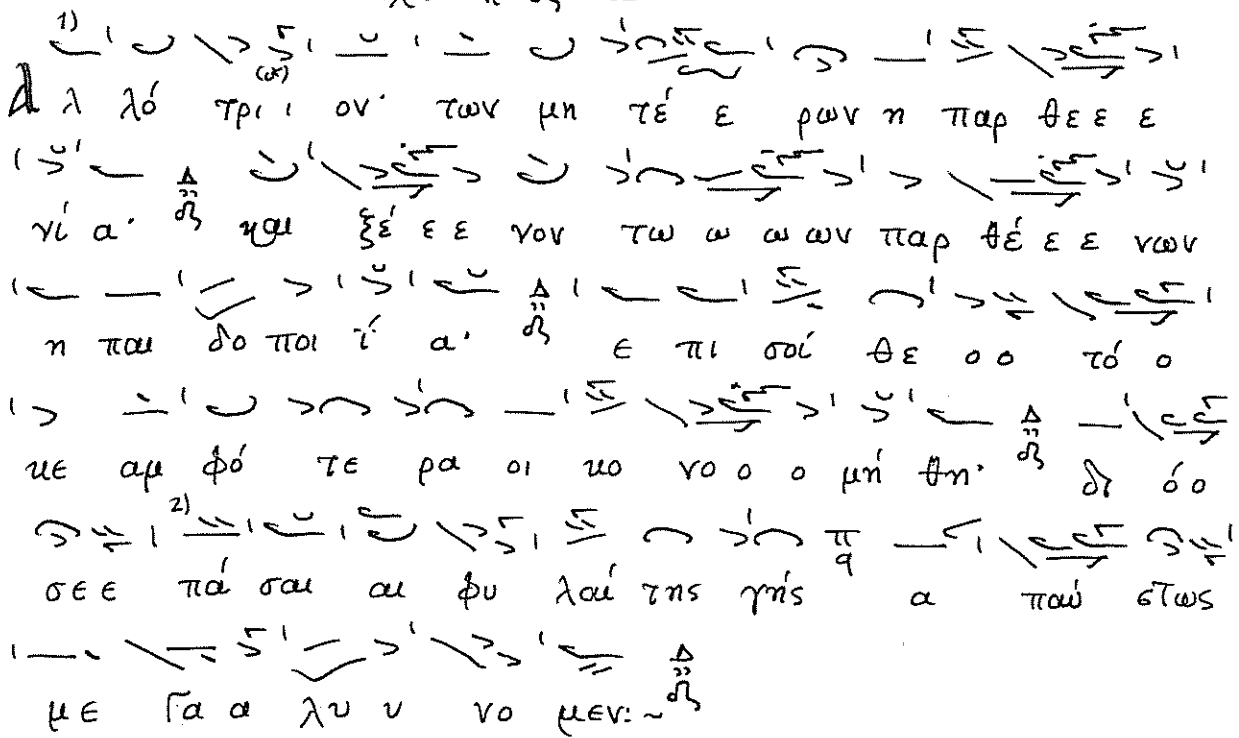 1)
(ω)
Αλ λό τρι ι ον· των μη τέ ε ρων η παρ θε ε ε
νί α· Δ και ξέ ε ε νον τω ω ω ων παρ θέ ε ε νων
η παι δο ποι ΐ α· Δ ε πι σοί θε ο ο τό ο
κε αμ φό τε ρα οι κο νο ο ο μή θη· Δ δι ό ο
2)
σε ε πά σαι αι φυ λαί της γής π q α παύ στως
με γα α λυ υ νο μεν:~ Δ